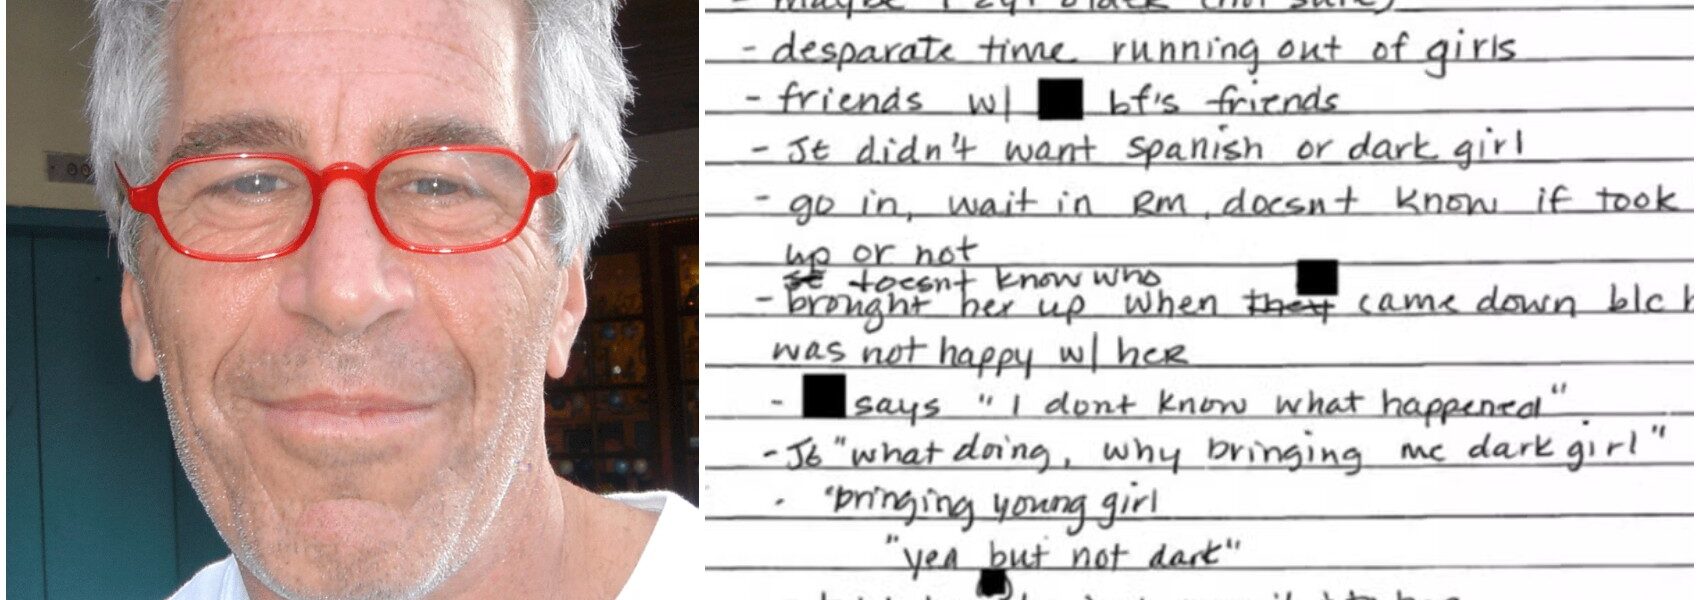 - maybe
- desparate time running out of girls
- friends w/ bf's friends
- JE didn't want spanish or dark girl
- go in, wait in RM, doesnt know if took
up or not
doesnt know who
- brought her up when they came down b/c
was not happy w/ her
- says "I dont know what happened"
- JE "what doing, why bringing me dark girl"
- "bringing young girl
"yea but not dark"